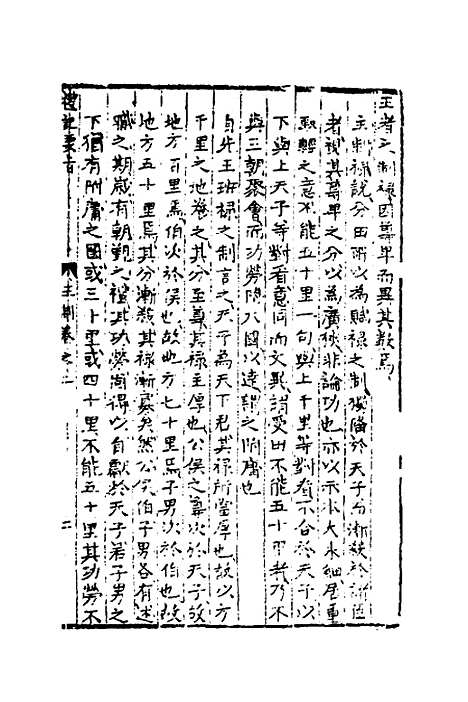 王者之制祿因尊卑而異其數焉
主制祿說分田所以為賦祿之制獨隆於天子而漸殺於諸臣
者視其尊卑之分以為廣狹非論功也亦以示小大本細居重
馭輕之意不能五十里一句與上千里等對看不合於天子以
下與上天子等對看意同而文異謂受田不能五十里者乃不
與三朝聚會而功勞附大國以達謂之附庸也
自先王班祿之制言之天子為天下君其祿所當厚也故以方
千里之地奄之其分至尊其祿至厚也公侯之尊次於天子故
地方百里焉伯次於侯也故地方七十里焉子男次於伯也故
地方五十里焉其分漸殺其祿漸寡矣然公侯伯子男各有述
職之期歲有朝覲之禮其功勞尚得以自獻於天子若子男之
下猶有附庸之國或三十里或四十里不能五十里其功勞不
禮記 王制卷之二 二